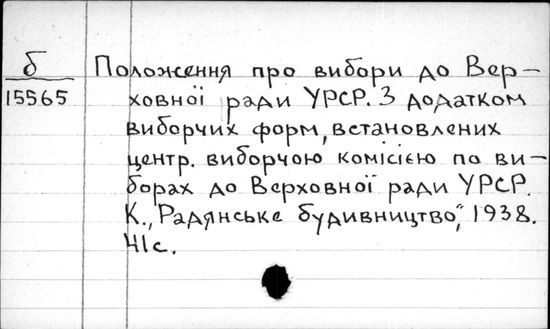 б
15565
Положення про вибори до Вер-
ховної ради УРСР. З додатком
виборчих форм, встановлених
центр. виборчою комісією по ви-
борах до Верховної ради УРСР.
К., "Радянське будивництво", 1938.
41с.